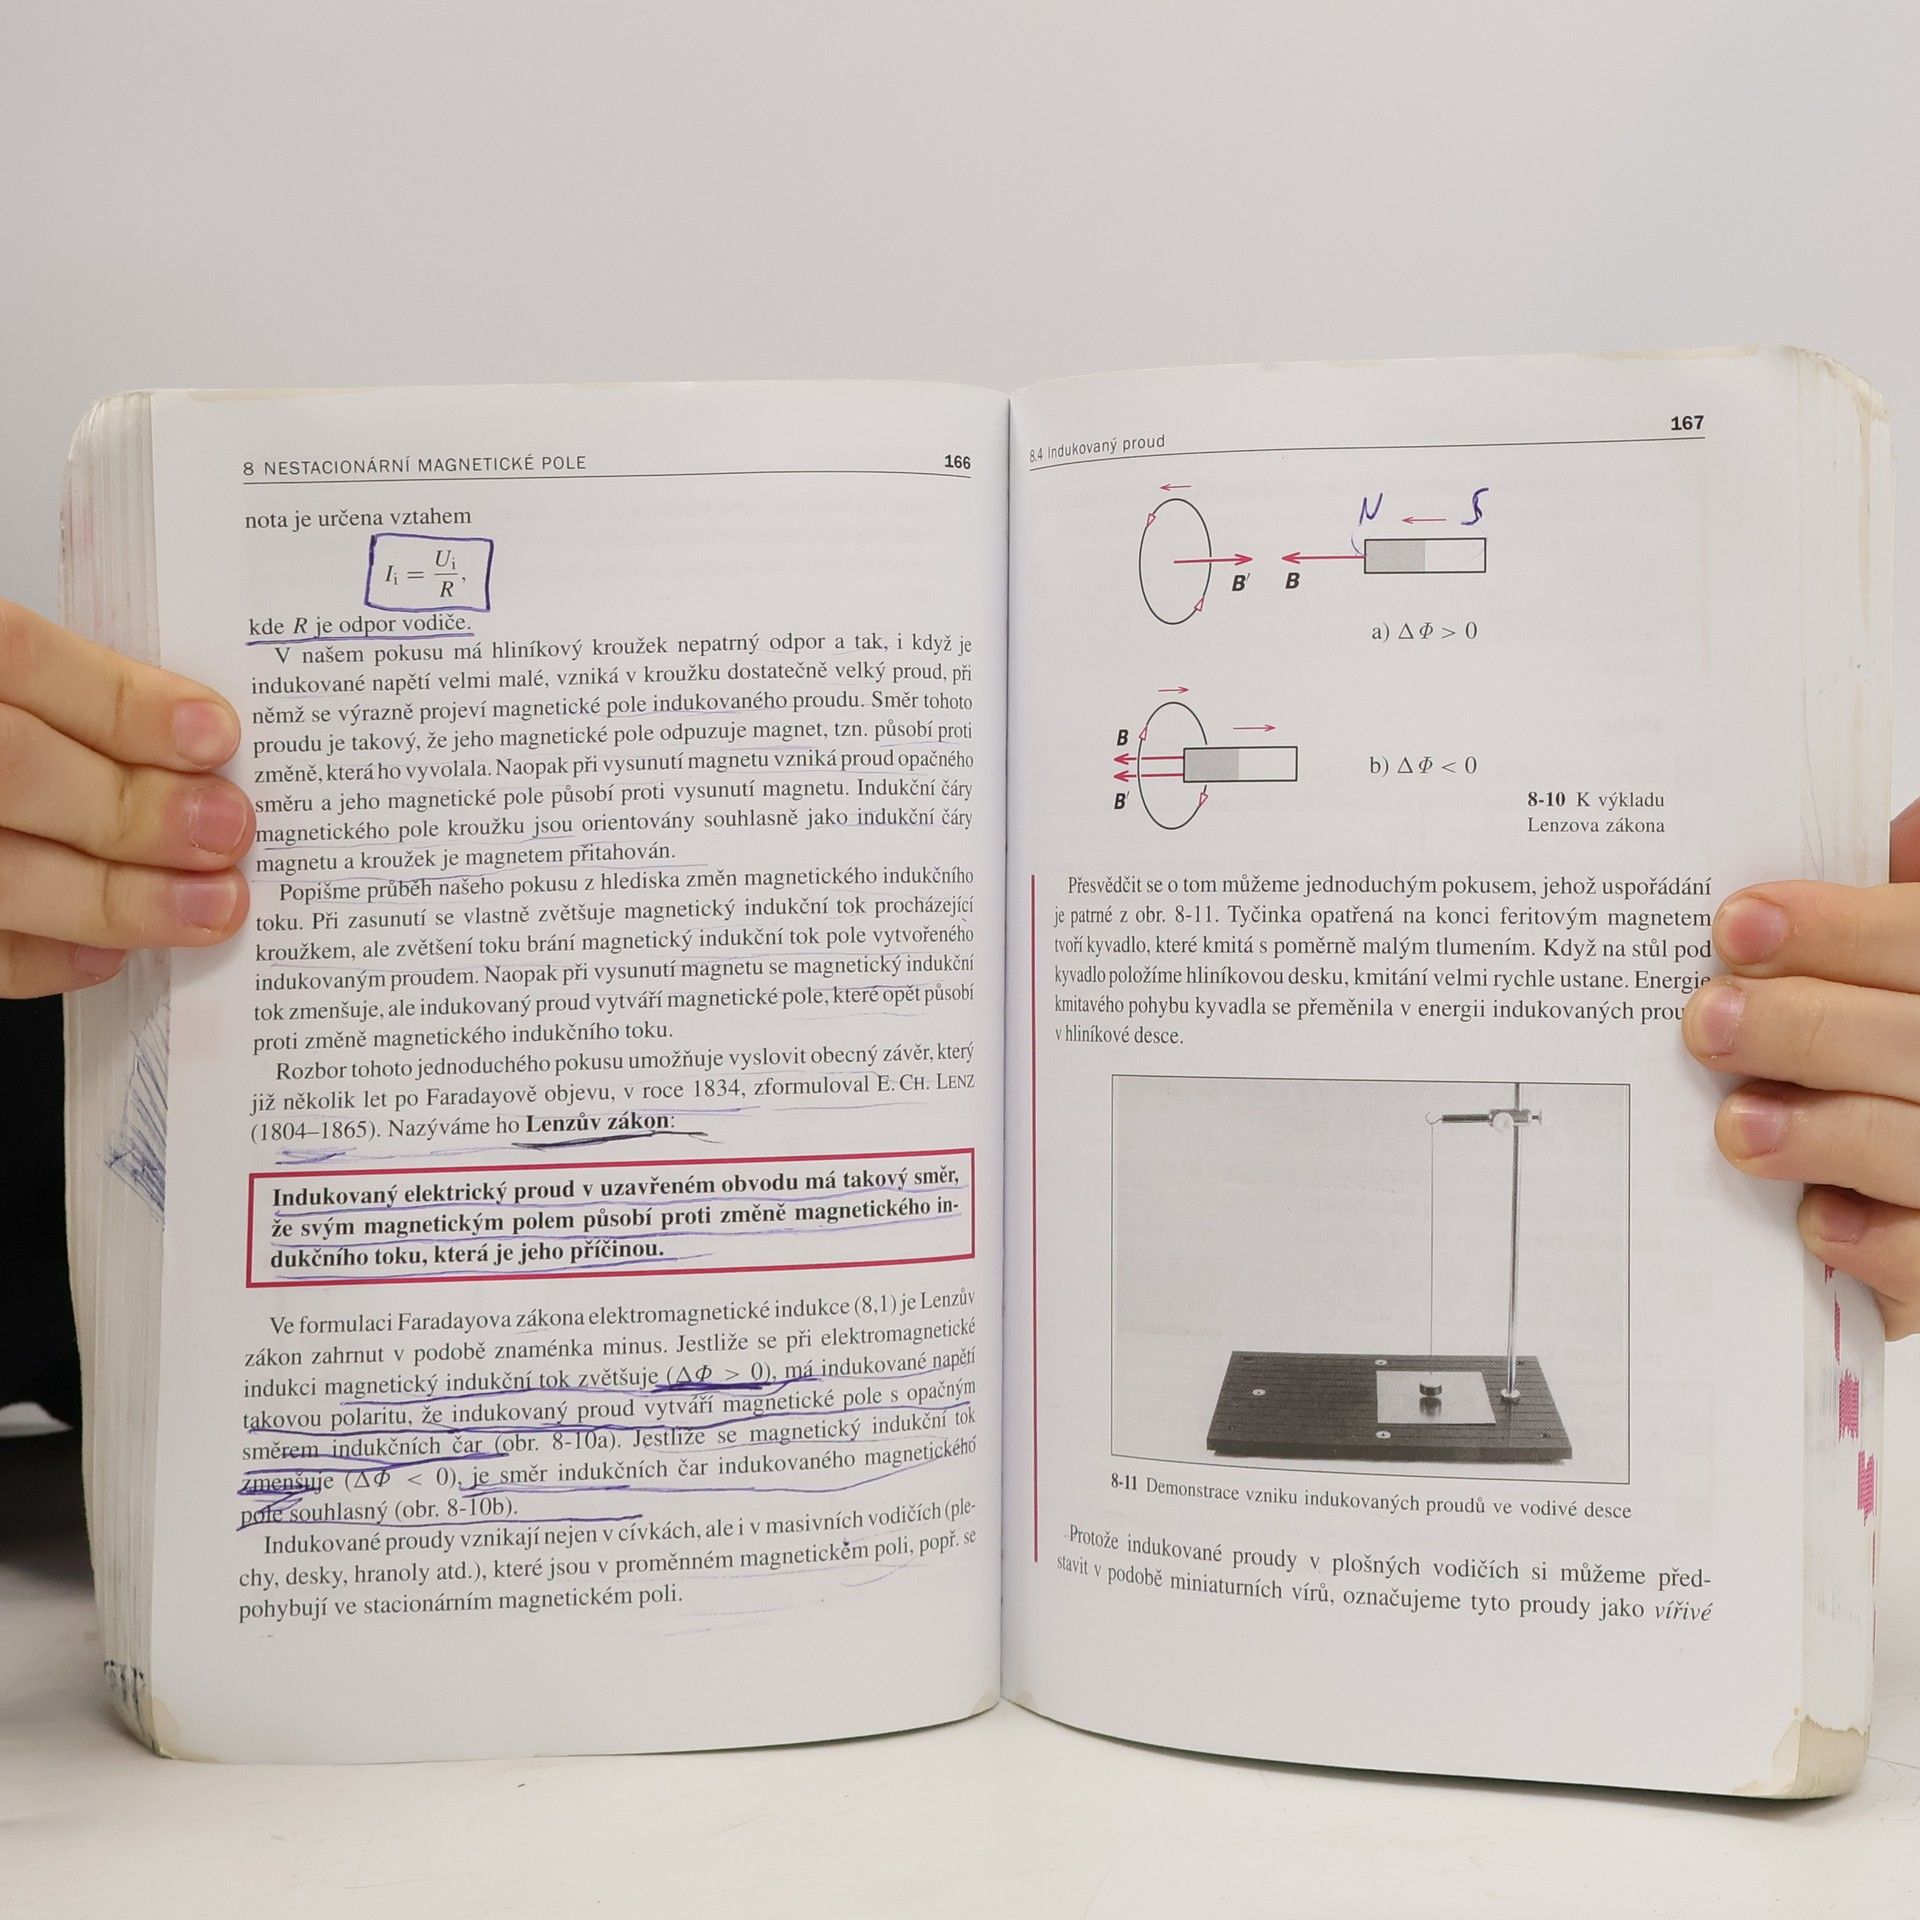 8 NESTACIONÁRNÍ MAGNETICKÉ POLE 166
nota je určena vztahem
I_i = U_i / R,
kde R je odpor vodiče.
V našem pokusu má hliníkový kroužek nepatrný odpor a tak, i když je
indukované napětí velmi malé, vzniká v kroužku dostatečně velký proud, při
němž se výrazně projeví magnetické pole indukovaného proudu. Směr tohoto
proudu je takový, že jeho magnetické pole odpuzuje magnet, tzn. působí proti
změně, která ho vyvolala. Naopak při vysunutí magnetu vzniká proud opačného
směru a jeho magnetické pole působí proti vysunutí magnetu. Indukční čáry
magnetického pole kroužku jsou orientovány souhlasně jako indukční čáry
magnetu a kroužek je magnetem přitahován.
Popišme průběh našeho pokusu z hlediska změn magnetického indukčního
toku. Při zasunutí se vlastně zvětšuje magnetický indukční tok procházející
kroužkem, ale zvětšení toku brání magnetický indukční tok pole vytvořeného
indukovaným proudem. Naopak při vysunutí magnetu se magnetický indukční
tok zmenšuje, ale indukovaný proud vytváří magnetické pole, které opět působí
proti změně magnetického indukčního toku.
Rozbor tohoto jednoduchého pokusu umožňuje vyslovit obecný závěr, který
již několik let po Faradayově objevu, v roce 1834, zformuloval E. CH. LENZ
(1804–1865). Nazýváme ho Lenzův zákon:
Indukovaný elektrický proud v uzavřeném obvodu má takový směr,
že svým magnetickým polem působí proti změně magnetického in-
dukčního toku, která je jeho příčinou.
Ve formulaci Faradayova zákona elektromagnetické indukce (8,1) je Lenzův
zákon zahrnut v podobě znaménka minus. Jestliže se při elektromagnetické
indukci magnetický indukční tok zvětšuje (ΔΦ > 0), má indukované napětí
takovou polaritu, že indukovaný proud vytváří magnetické pole s opačným
směrem indukčních čar (obr. 8-10a). Jestliže se magnetický indukční tok
zmenšuje (ΔΦ < 0), je směr indukčních čar indukovaného magnetického
pole souhlasný (obr. 8-10b).
Indukované proudy vznikají nejen v cívkách, ale i v masivních vodičích (ple-
chy, desky, hranoly atd.), které jsou v proměnném magnetickém poli, popř. se
pohybují ve stacionárním magnetickém poli.
8.4 Indukovaný proud 167
N S
B′ B
a) ΔΦ > 0
B
B′
b) ΔΦ < 0
8-10 K výkladu
Lenzova zákona
Přesvědčit se o tom můžeme jednoduchým pokusem, jehož uspořádání
je patrné z obr. 8-11. Tyčinka opatřená na konci feritovým magnetem
tvoří kyvadlo, které kmitá s poměrně malým tlumením. Když na stůl pod
kyvadlo položíme hliníkovou desku, kmitání velmi rychle ustane. Energie
kmitavého pohybu kyvadla se přeměnila v energii indukovaných prou
v hliníkové desce.
8-11 Demonstrace vzniku indukovaných proudů ve vodivé desce
Protože indukované proudy v plošných vodičích si můžeme před-
stavit v podobě miniaturních vírů, označujeme tyto proudy jako vířivé